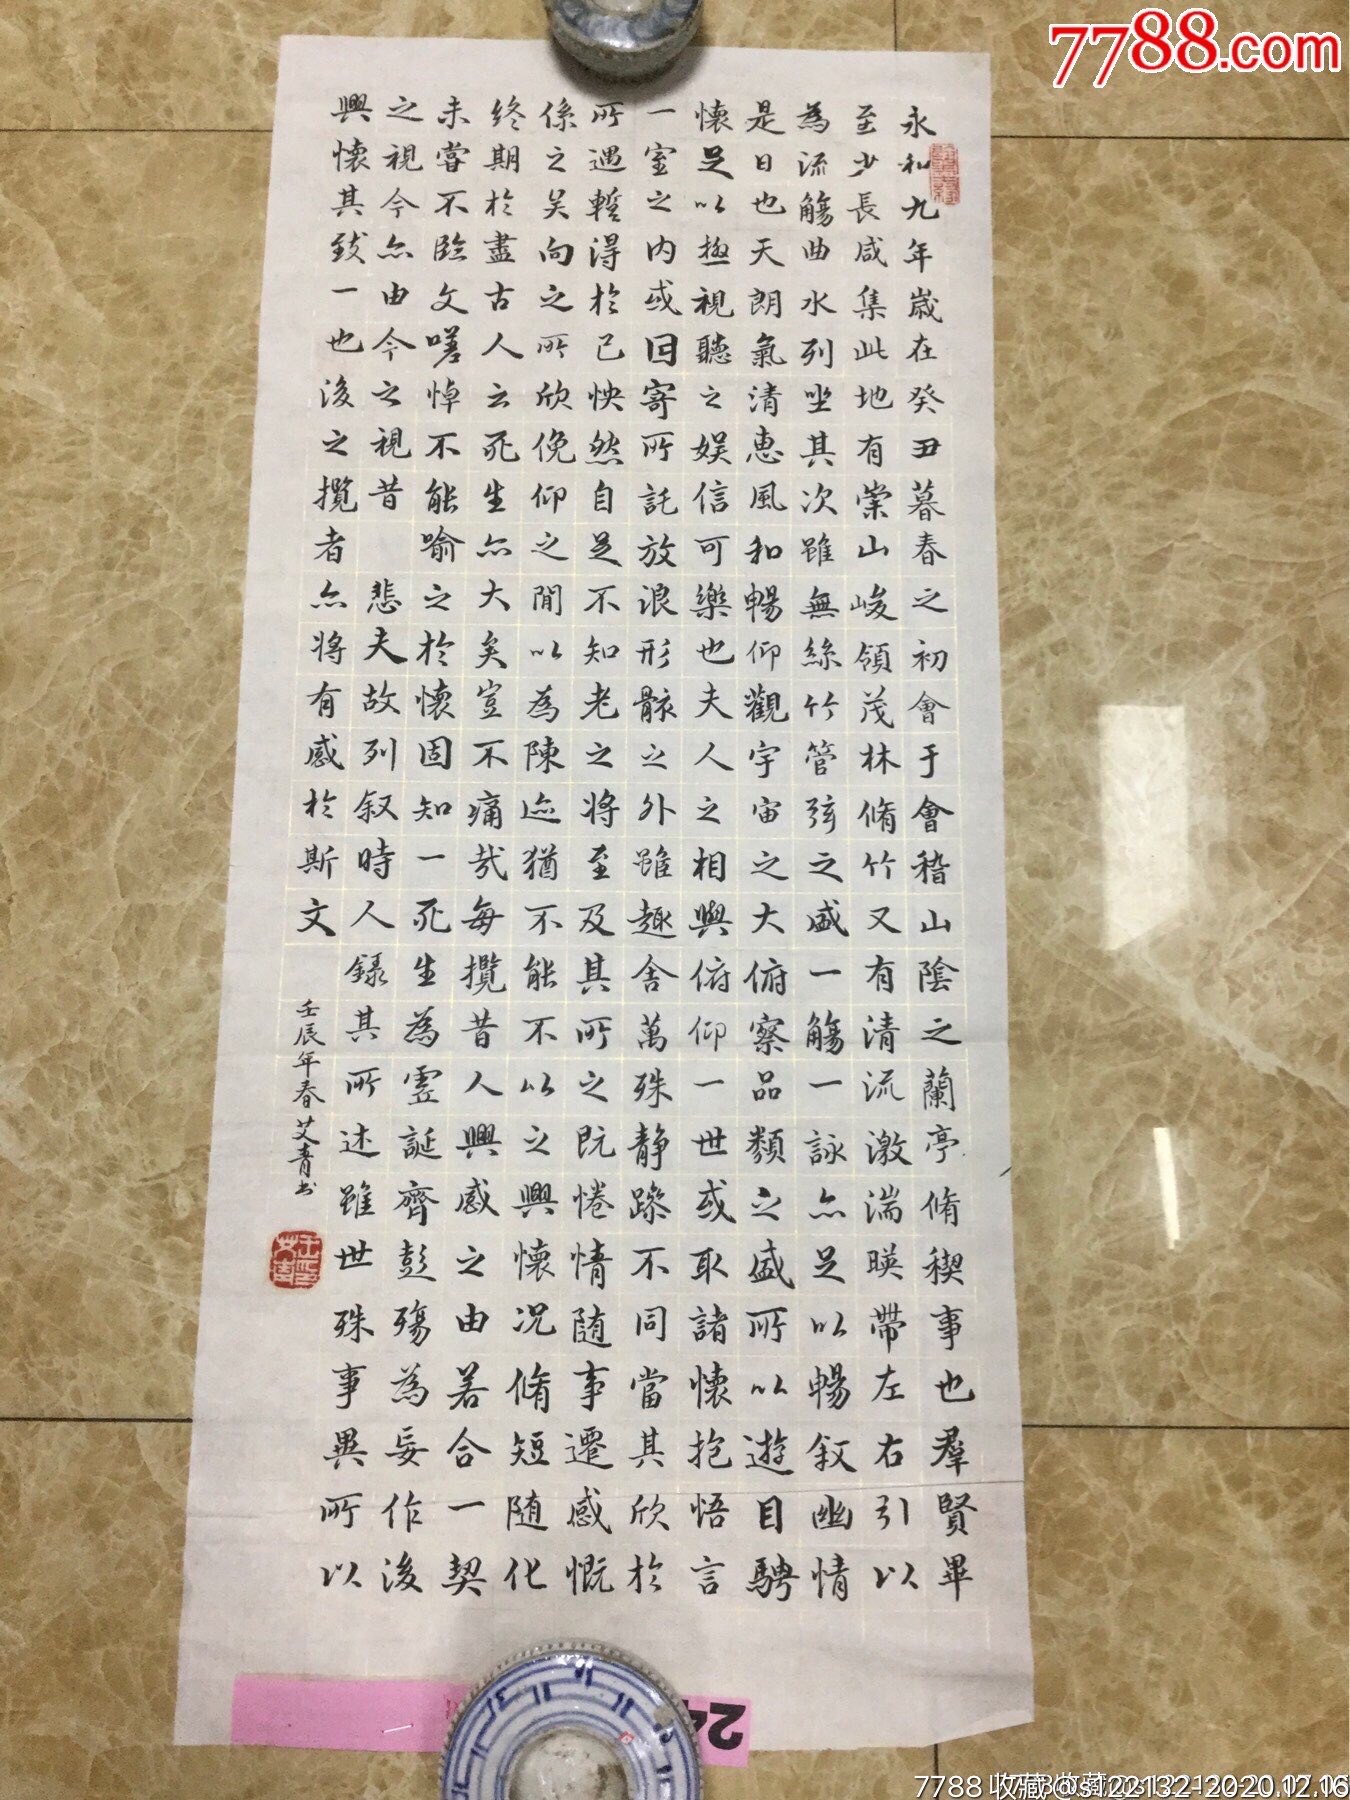 7788.com
永和九年歲在癸丑暮春之初會于會稽山陰之蘭亭脩稧事也羣賢畢
至少長咸集此地有崇山峻領茂林脩竹又有清流激湍暎帶左右引以
為流觴曲水列坐其次雖無絲竹管弦之盛一觴一詠亦足以暢叙幽情
是日也天朗氣清惠風和暢仰觀宇宙之大俯察品類之盛所以遊目騁
懷足以極視聽之娛信可樂也夫人之相與俯仰一世或取諸懷抱悟言
一室之内或因寄所託放浪形骸之外雖趣舍萬殊静躁不同當其欣於
所遇暫得於己怏然自足不知老之將至及其所之既惓情随事遷感慨
係之矣向之所欣俛仰之閒以為陳迹猶不能不以之興懷况脩短随化
終期於盡古人云死生亦大矣豈不痛哉每攬昔人興感之由若合一契
未嘗不臨文嗟悼不能喻之於懷固知一死生為虛誕齊彭殤為妄作後
之視今亦由今之視昔 悲夫故列叙時人録其所述雖世殊事異所以
興懷其致一也後之攬者亦將有感於斯文
壬辰年春艾青书
24
7788 收藏@s122132-2020.12.16